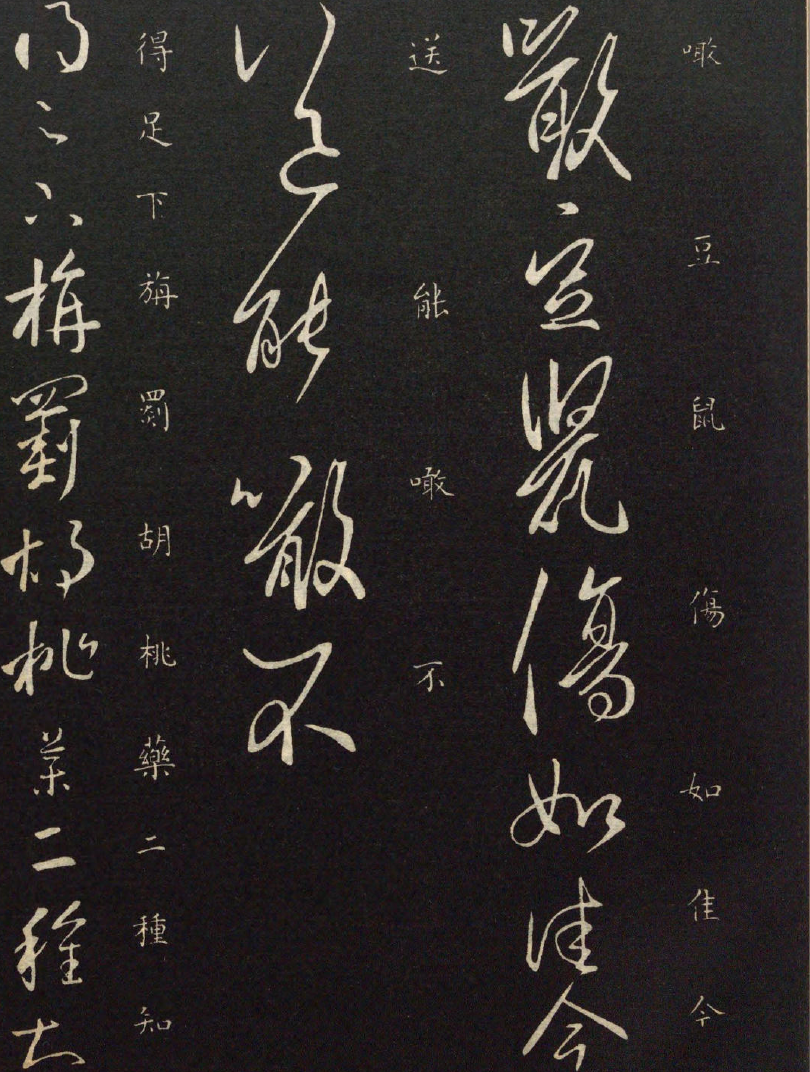 噉豆鼠傷如佳今
噉豆鼠傷如佳今
送能噉不
送能噉不
得足下旃罽胡桃藥二種知
得足下旃罽胡桃藥二種知